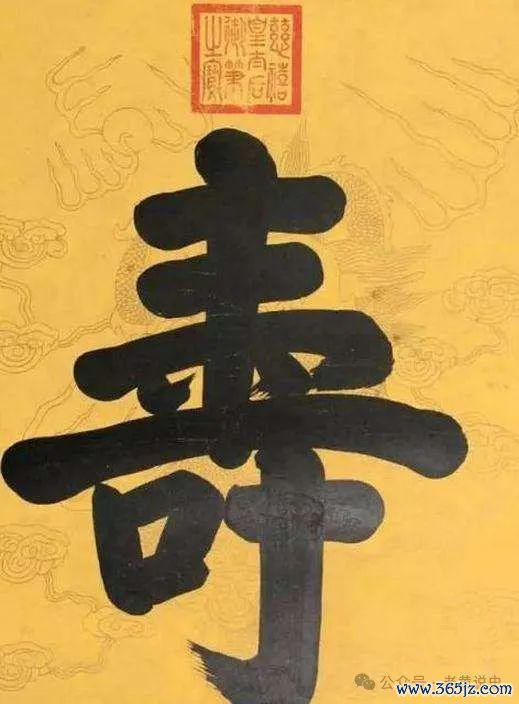 慈禧
皇太后
御筆
之寶
壽
公众号
www.365jz.com